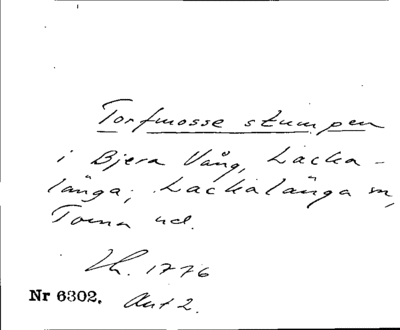 Torfmosse stumpen
i Bjera Vång, Lacka-
länga; Lackalänga sn,
Torna hd.
Lh. 1776
Nr 6302. Akt 2.